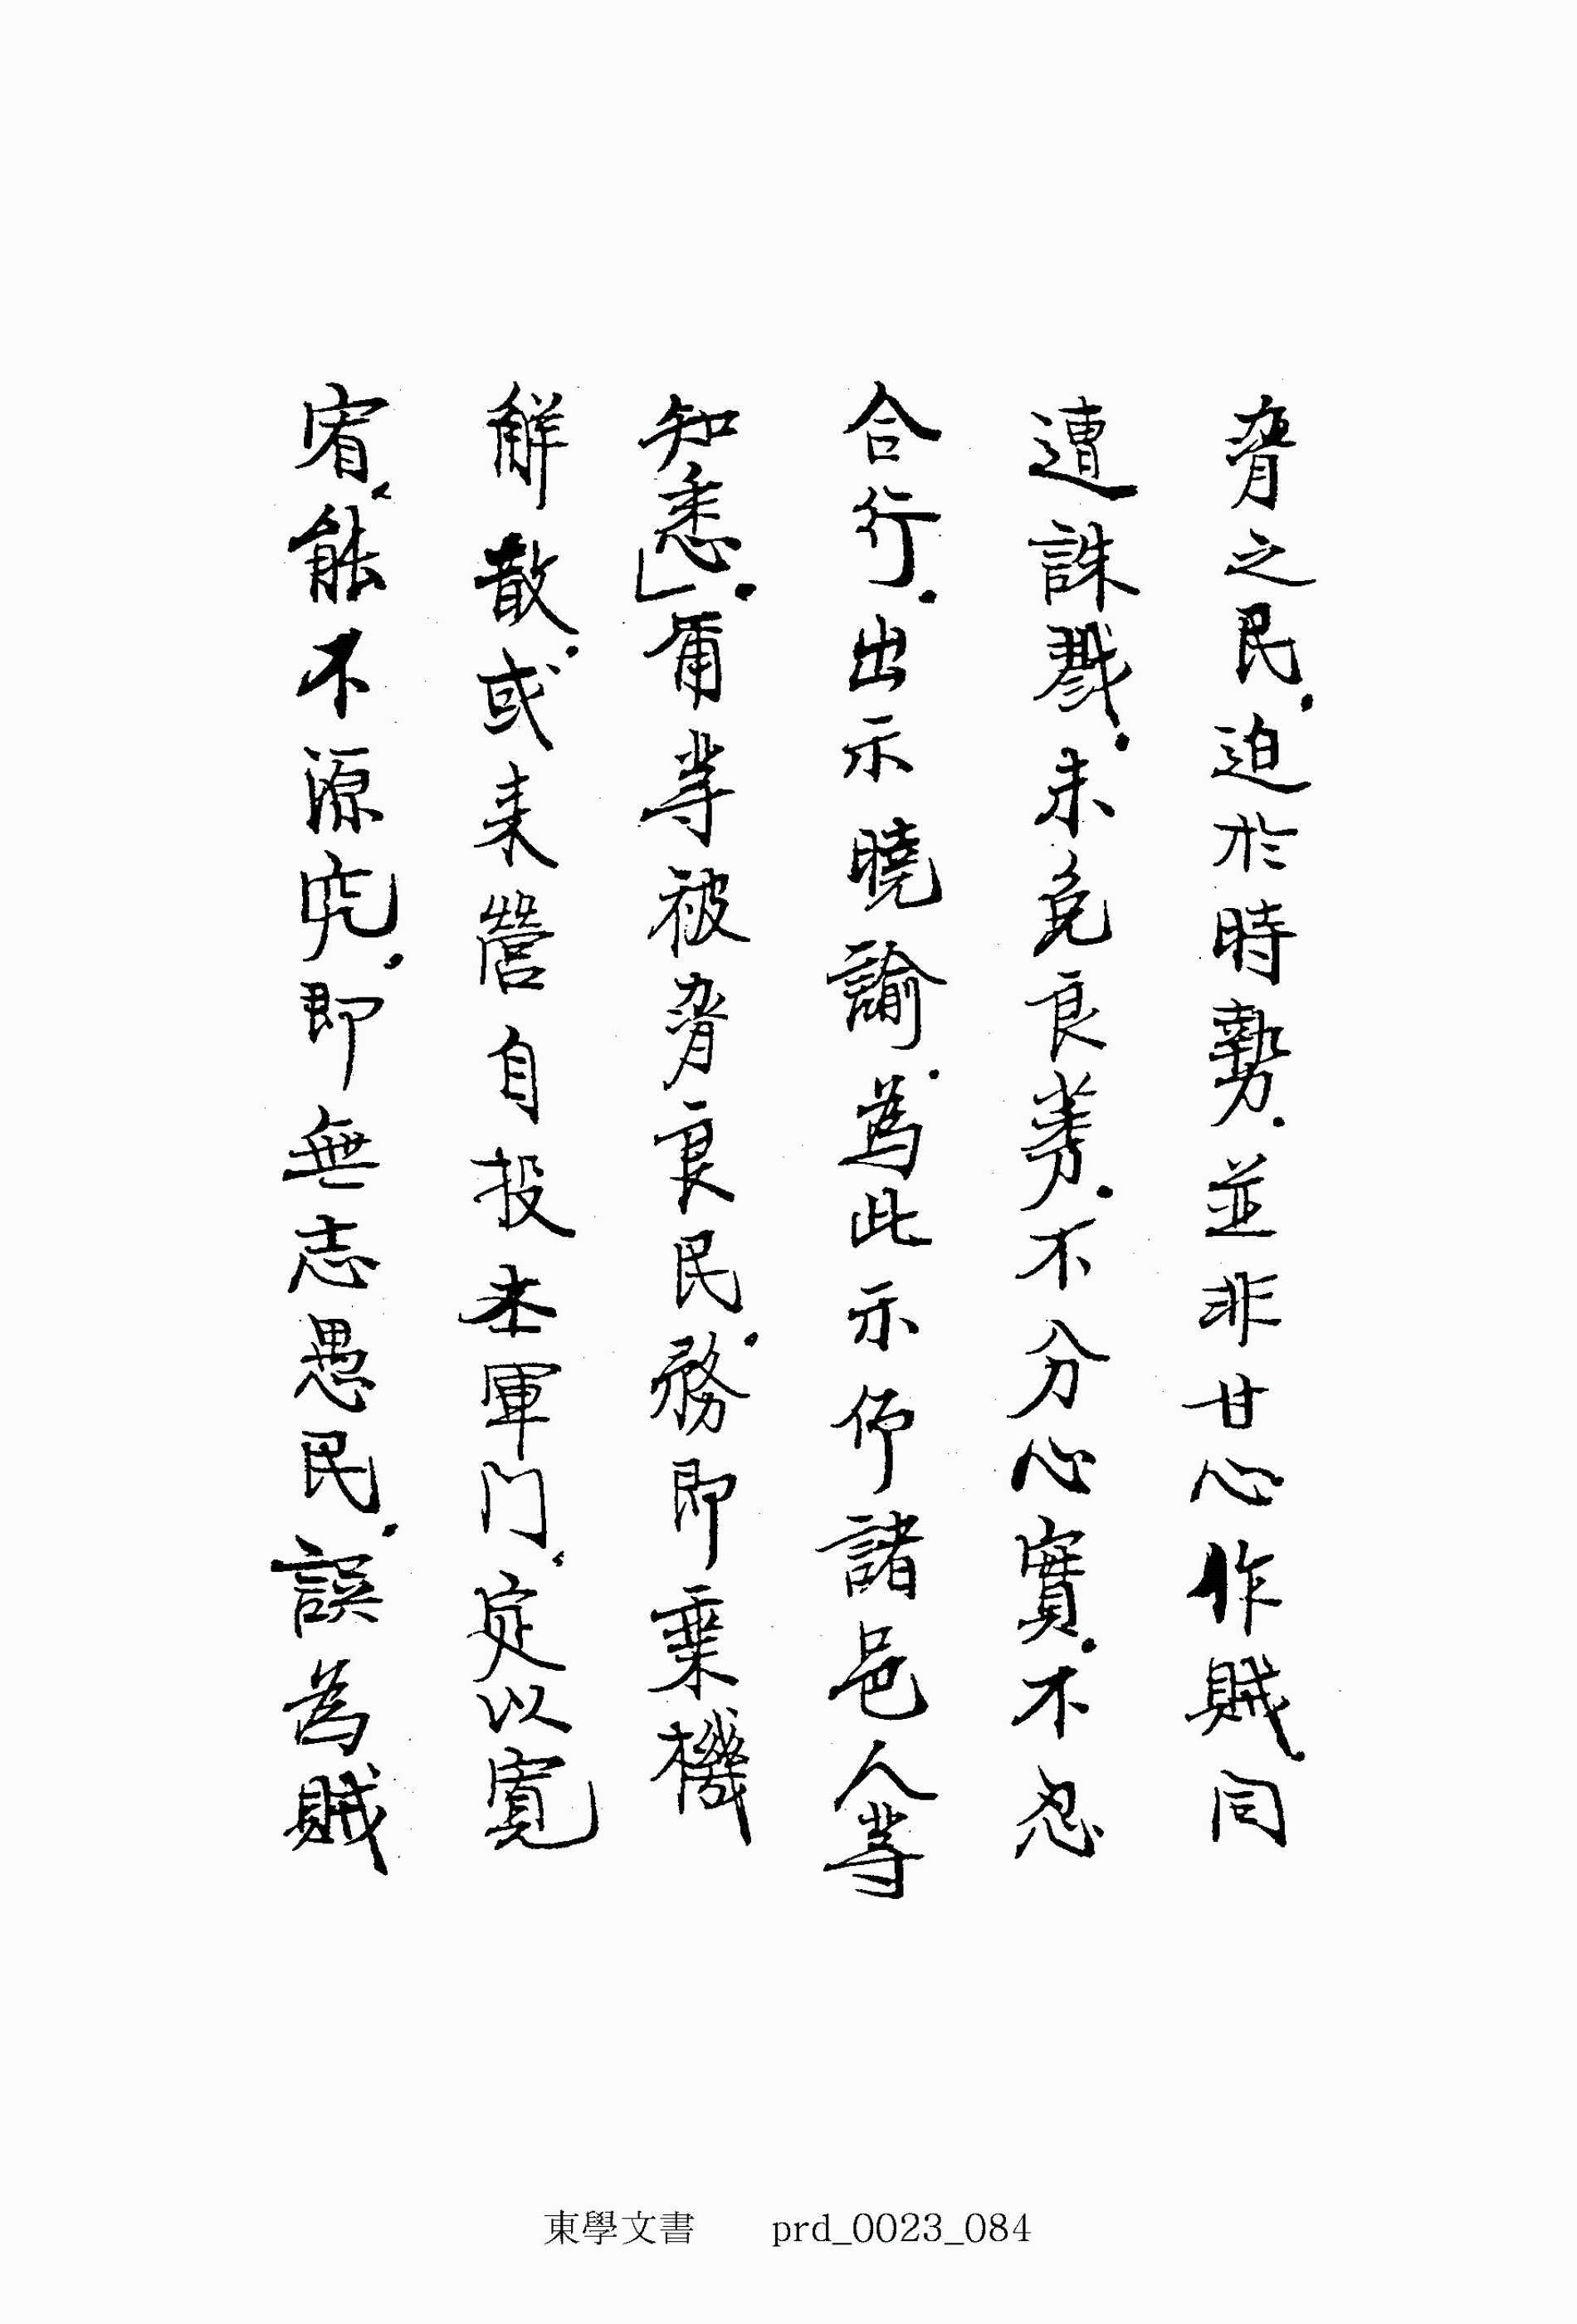 脅之民.迫於時勢.並非甘心作賊.同
遭誅戮.未免良莠.不分心實.不忍
合行.出示曉諭.為此示仰諸邑人等
知悉」.爾等被脅良民.務即乘機
解散.或来營自投本軍門.定以寬
宥.能不深究.即無志愚民.誤為賊
東學文書 prd_0023_084